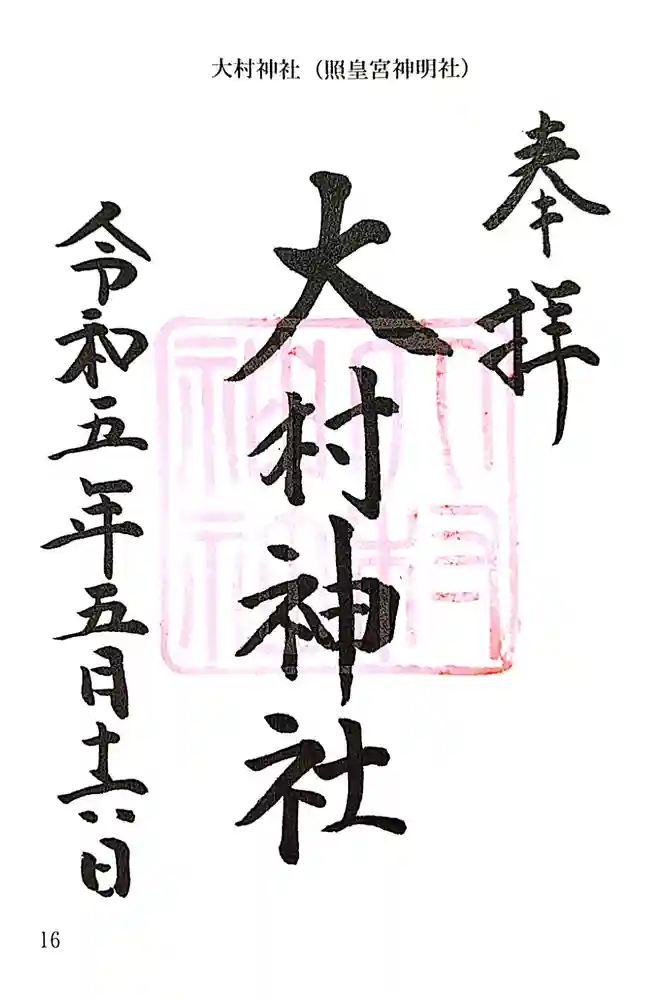 大村神社（照皇宮神明社）
奉拝
大村神社
八相
神社
令和五年五月十六日
16